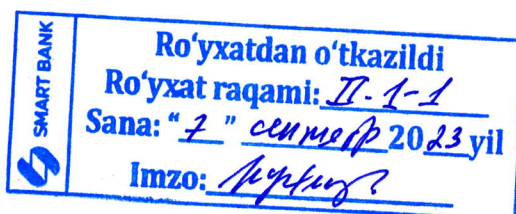 SMART BANK
Ro‘yxatdan o‘tkazildi
Ro‘yxat raqami: II-1-1
Sana: “7” сентябр 2023 yil
Imzo: